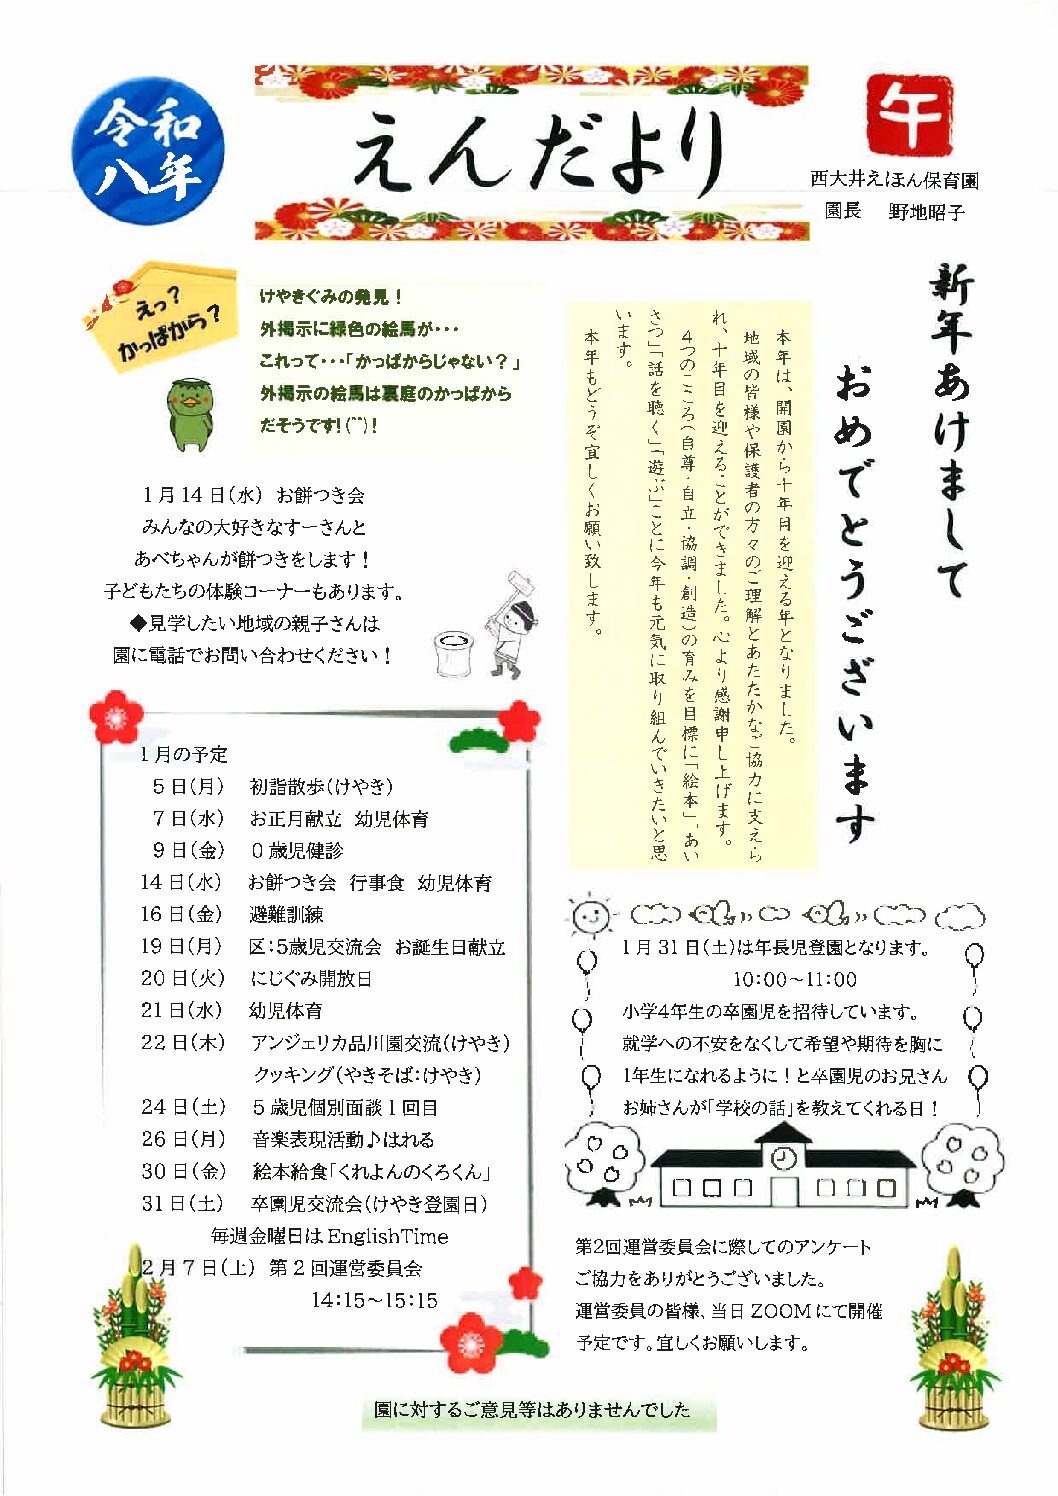 令和
八年
えんだより
午
西大井えほん保育園
園長　野地昭子
新年あけまして
おめでとうございます
えっ？
かっぱから？
けやきぐみの発見！
外掲示に緑色の絵馬が・・・
これって・・・「かっぱからじゃない？」
外掲示の絵馬は裏庭のかっぱから
だそうです!(^^)!
本年は、開園から十年目を迎える年となりました。
地域の皆様や保護者の方々のご理解とあたたかなご協力に支えら
れ、十年目を迎えることができました。心より感謝申し上げます。
４つのこころ（自尊・自立・協調・創造）の育みを目標に「絵本」、あい
さつ」「話を聴く」「遊ぶ」ことに今年も元気に取り組んでいきたいと思
います。
本年もどうぞ宜しくお願い致します。
1月14日（水）お餅つき会
みんなの大好きなすーさんと
あべちゃんが餅つきをします！
子どもたちの体験コーナーもあります。
◆見学したい地域の親子さんは
園に電話でお問い合わせください！
1月の予定
5日（月）　初詣散歩（けやき）
7日（水）　お正月献立　幼児体育
9日（金）　０歳児健診
14日（水）　お餅つき会　行事食　幼児体育
16日（金）　避難訓練
19日（月）　区：5歳児交流会　お誕生日献立
20日（火）　にじぐみ開放日
21日（水）　幼児体育
22日（木）　アンジェリカ品川園交流（けやき）
クッキング（やきそば：けやき）
24日（土）　5歳児個別面談1回目
26日（月）　音楽表現活動♪はれる
30日（金）　絵本給食「くれよんのくろくん」
31日（土）　卒園児交流会（けやき登園日）
毎週金曜日はEnglishTime
2月7日（土）第2回運営委員会
14:15～15:15
1月31日（土）は年長児登園となります。
10:00～11:00
小学4年生の卒園児を招待しています。
就学への不安をなくして希望や期待を胸に
1年生になれるように！と卒園児のお兄さん
お姉さんが「学校の話」を教えてくれる日！
第2回運営委員会に際してのアンケート
ご協力をありがとうございました。
運営委員の皆様、当日ZOOMにて開催
予定です。宜しくお願いします。
園に対するご意見等はありませんでした